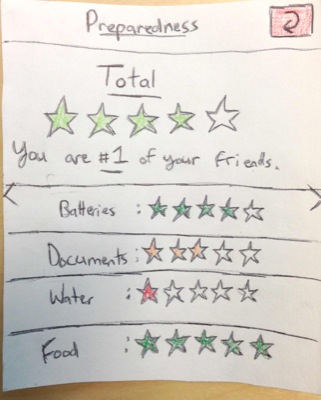 Preparedness
Total
You are #1 of your friends.
Batteries :
Documents :
Water :
Food :